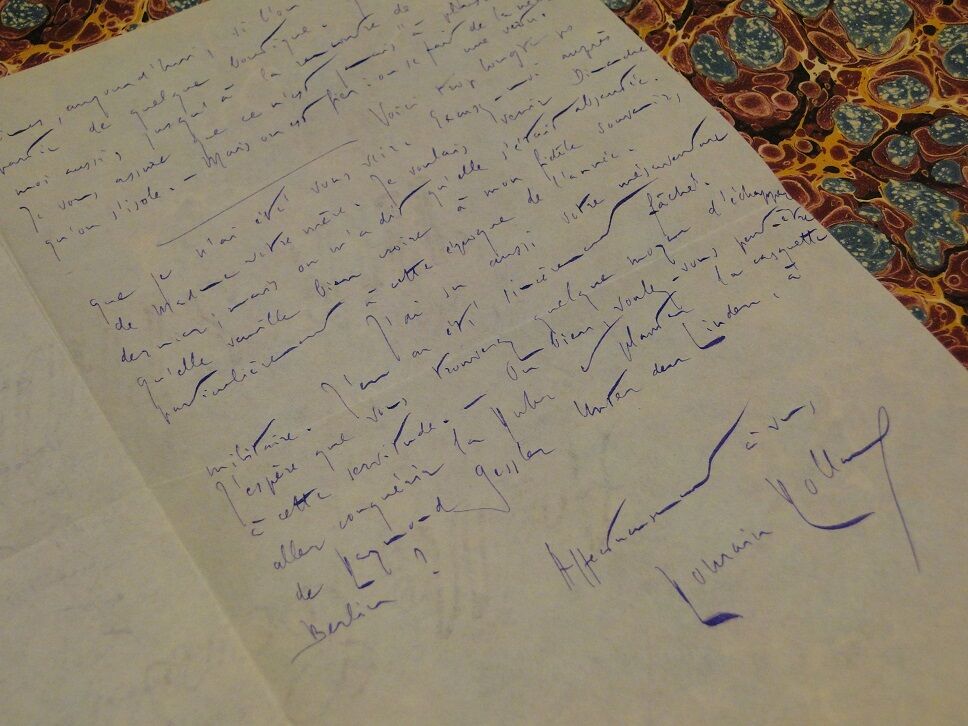 aujourd'hui, si l'on
de quelque boutique.
moi aussi, jusqu'à la
Je vous assure que ce n'est jamais
qu'on s'isole. - Mais on est fier: on se fait
Voici trop longtemps
que je n'ai été vous voir. Excusez-moi auprès
de Madame votre mère. Je voulais venir Dimanche
dernier; mais on m'a dit qu'elle s'était absentée.
qu'elle veuille bien croire à mon fidèle souvenir,
particulièrement à cette époque de l'année.
J'ai su aussi votre mésaventure
militaire. J'en ai été sincèrement fâché.
J'espère que vous trouverez quelque moyen d'échapper
à cette servitude. - Ou bien, voulez-vous peut-être
aller conquérir la Ruhr, et planter la casquette
de Gessler Unter den Linden, à
Berlin?
Affectueusement à vous
Romain Rolland